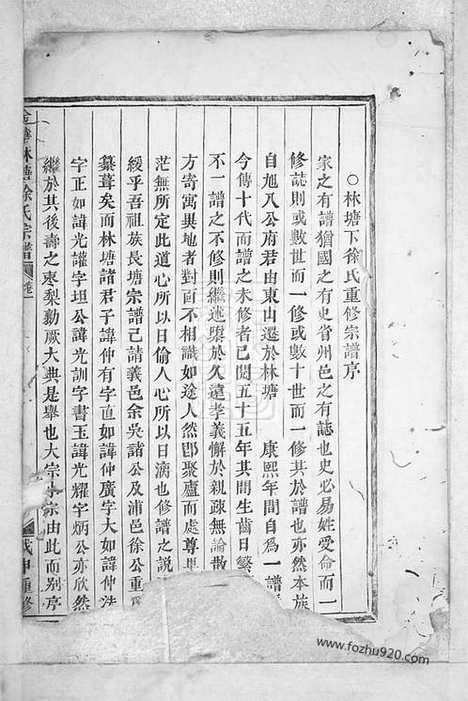 ○林塘下徐氏重修宗譜序
家之有譜猶國之有史省州邑之有誌也史必易姓受命而一
修誌則或數世而一修或數十世而一修其於譜也亦然本族
自旭八公府君由東山遷於林塘 康熙年間自爲一譜
今傳十代而譜之未修者已閱五十五年其間生齒日繁
不一譜之不修則繼述墜於久遠孝義懈於親疎無論散
方寄寓異地者對面不相識如途人然卽聚廬而處尊卑
茫無所定此道心所以日偷人心所以日漓也修譜之說
緩乎吾祖族長塘宗譜已請義邑余吳諸公及浦邑徐公重
纂葺矣而林塘諸君子諱仲有字直如諱仲廣字大如諱仲法
字正如諱光讙字坦公諱光訓字書玉諱光耀字炳公亦欣然
繼於其後壽之棗梨勳厥大典是舉也大宗小宗由此而別序
華林塘徐氏宗譜 卷 戊申重修
www.fozhu920.com